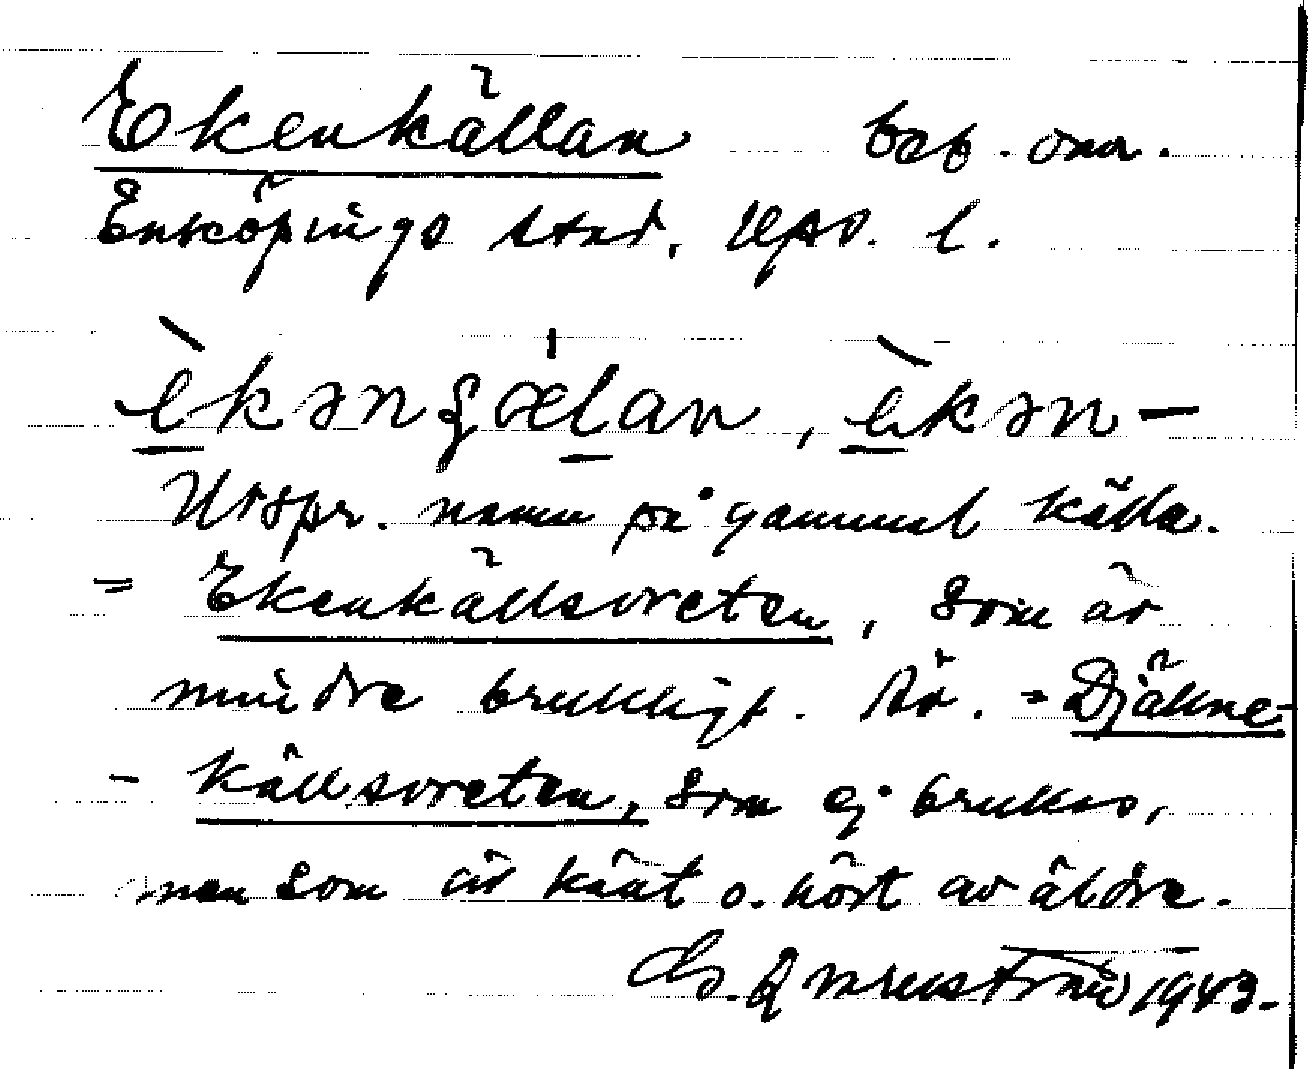 Ekenkällan beb. omr.
Enköpings stad, Upps. l.
Urspr. namn på gammal källa.
= Ekenkällsvreten, som är
mindre brukligt. Äv. = Djäkne-
- källsvreten, som ej brukas,
men som är känt o. hört av äldre.
1943.